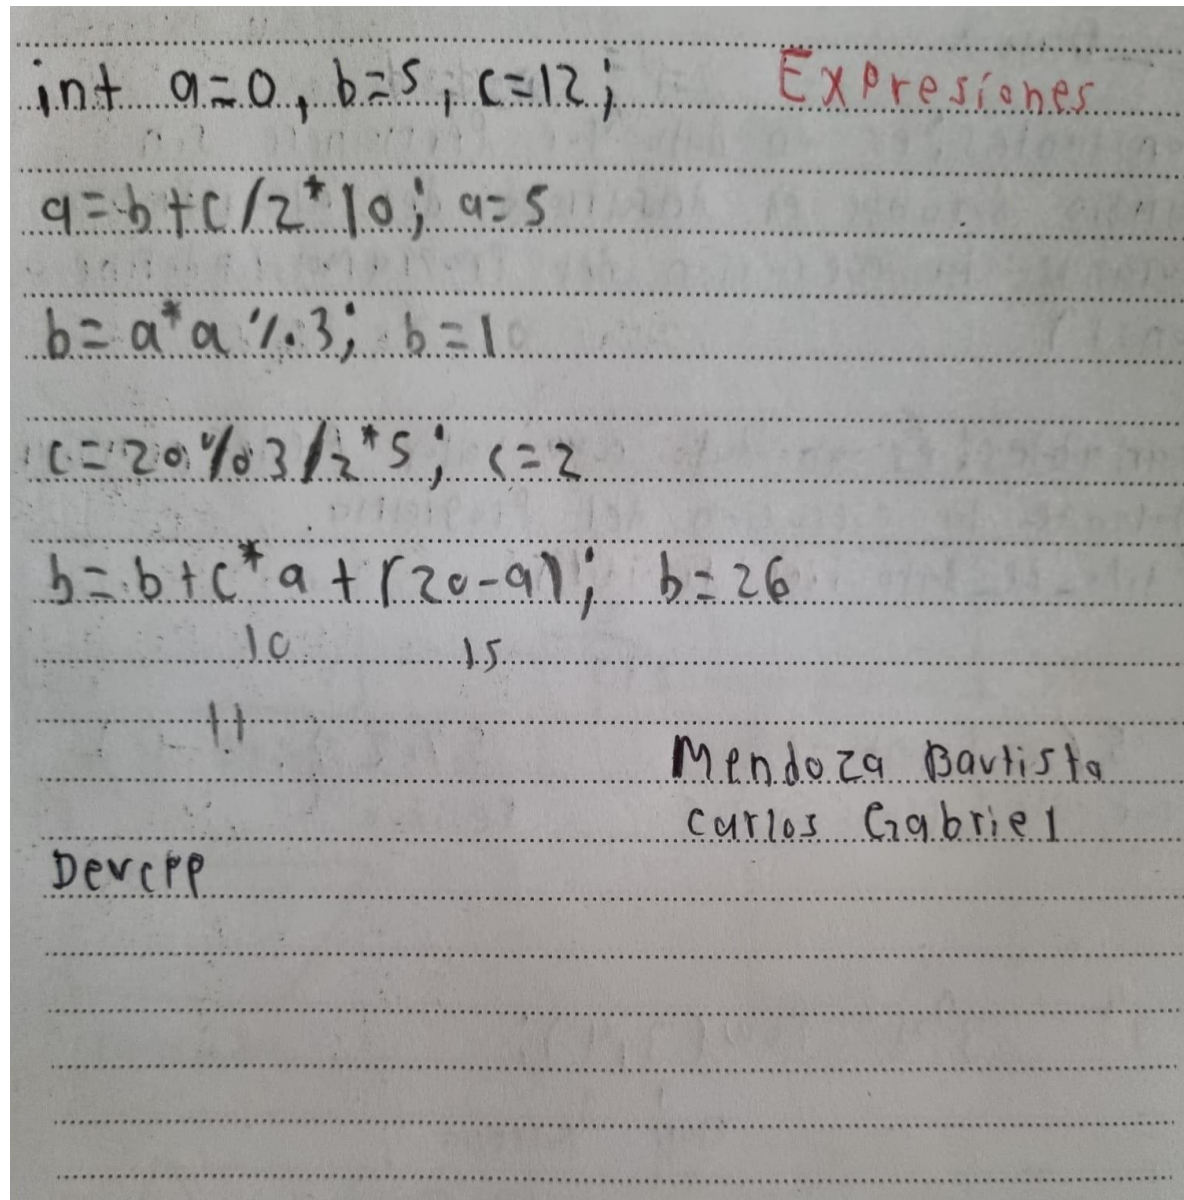 int a=0, b=5, c=12; Expresiones
a=b+c/2*10; a=5
b=a*a%3; b=1
c=20%3/2*5; c=2
b=b+c*a+(20-a); b=26
10 15
11
Mendoza Bautista
Carlos Gabriel
Devcpp